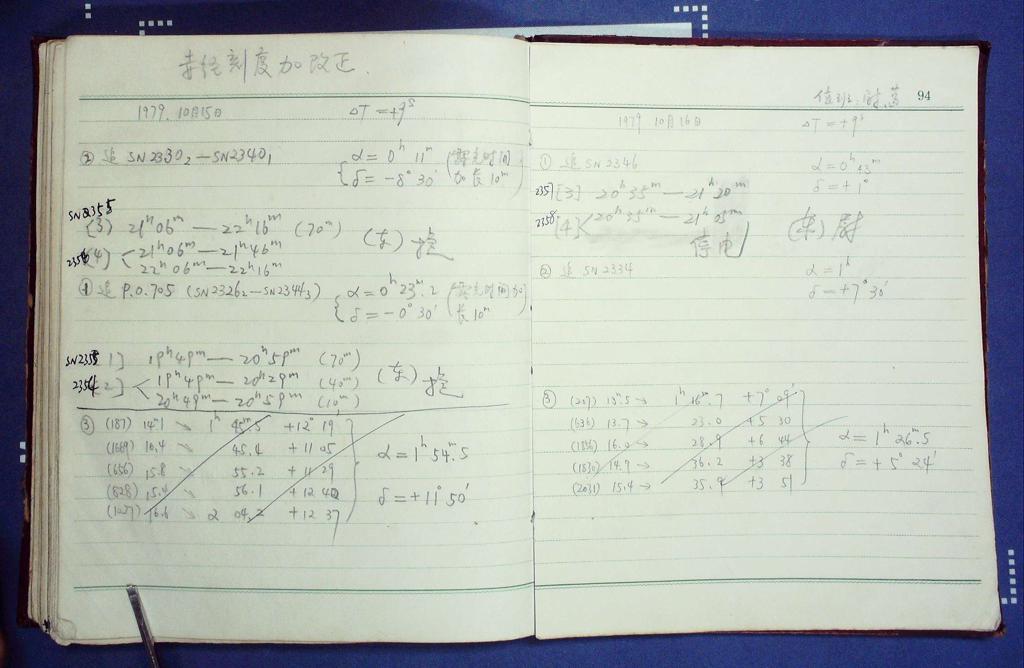 赤经刻度加改正.
1979. 10月15日 ΔT=+9ˢ
② 追 SN2330₂—SN2340₁ α=0ʰ 11ᵐ (露光时间
δ=-8° 30′ 加长10ᵐ
SN2355
[3] 21ʰ06ᵐ — 22ʰ16ᵐ (70ᵐ)
[4] < 21ʰ06ᵐ — 21ʰ46ᵐ (东)
22ʰ06ᵐ — 22ʰ16ᵐ
① 追 P.O.705 (SN2326₂—SN2344₃) α=0ʰ23ᵐ.2 (露光时间加
δ=-0° 30′ 长10ᵐ
1] 19ʰ49ᵐ — 20ʰ59ᵐ (70ᵐ)
2354 [2] < 19ʰ49ᵐ — 20ʰ29ᵐ (40ᵐ) (东)
20ʰ49ᵐ — 20ʰ59ᵐ (10ᵐ)
③ (187) 14ᵐ.1 → 1ʰ 45ᵐ.5 +12° 19′
(1669) 16.4 → 45.4 +11 05 α=1ʰ54ᵐ.5
(656) 15.8 → 55.2 +11 29
(828) 15.4 → 56.1 +12 42 δ=+11° 50′
16.6 → 2 04.2 +12 37
值班: 94
1979 10月16日 ΔT=+9ˢ
① 追 SN2346 α=0ʰ43ᵐ
δ=+1°
2357 [3] 20ʰ35ᵐ — 21ʰ20ᵐ
2358 [4] < 20ʰ35ᵐ — 21ʰ05ᵐ (东) 尉
停电
② 追 SN2334 α=1ʰ
δ=+7° 30′
③ (207) 13ᵐ.5 → 1ʰ 16ᵐ.7 +7° 09′
(636) 13.7 → 23.0 +5 30
(1886) 16.0 → 28.9 +6 44 α=1ʰ26ᵐ.5
(1830) 14.9 → 36.2 +3 38 δ=+5° 24′
(2031) 15.4 → 35.9 +3 51